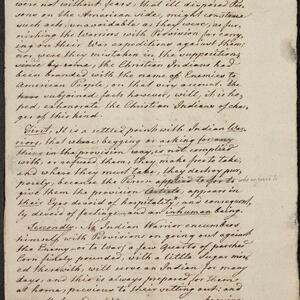 were not without fears, that ill disposed Per-
sons on the American side, might construe
such acts, unavoidable as they were, as fur-
nishing the Warriors with Provision for carry-
ing on their War expeditions against them;
nor were they mistaken in the supposition
since by some, the Christian Indians had
been branded with the name of Enemies to
American People, on that very account. The
here subjoined facts however, will, it is ho-
ped, exhonerate the Christian Indians of char-
ges of this kind.
First. It is a settled point with Indian War-
riors, that when begging or asking for any
thing in the provision way, is not complied
with, or refused them, they make free to take,
and where they must take, they destroy pur-
posely; because the Person applied to for
provision, appears in
their Eyes devoid of hospitality, and consequent-
ly devoid of feelings, and an inhuman being.
Secondly. No Indian Warrior encumbers
himself with Provisions on going out against
the Enemy, or to War; a few Quarts of parched
Corn finely pounded, with a little Sugar mix-
ed therewith, will serve an Indian for many
days, and this is always prepared for them
at home, previous to their setting out; and